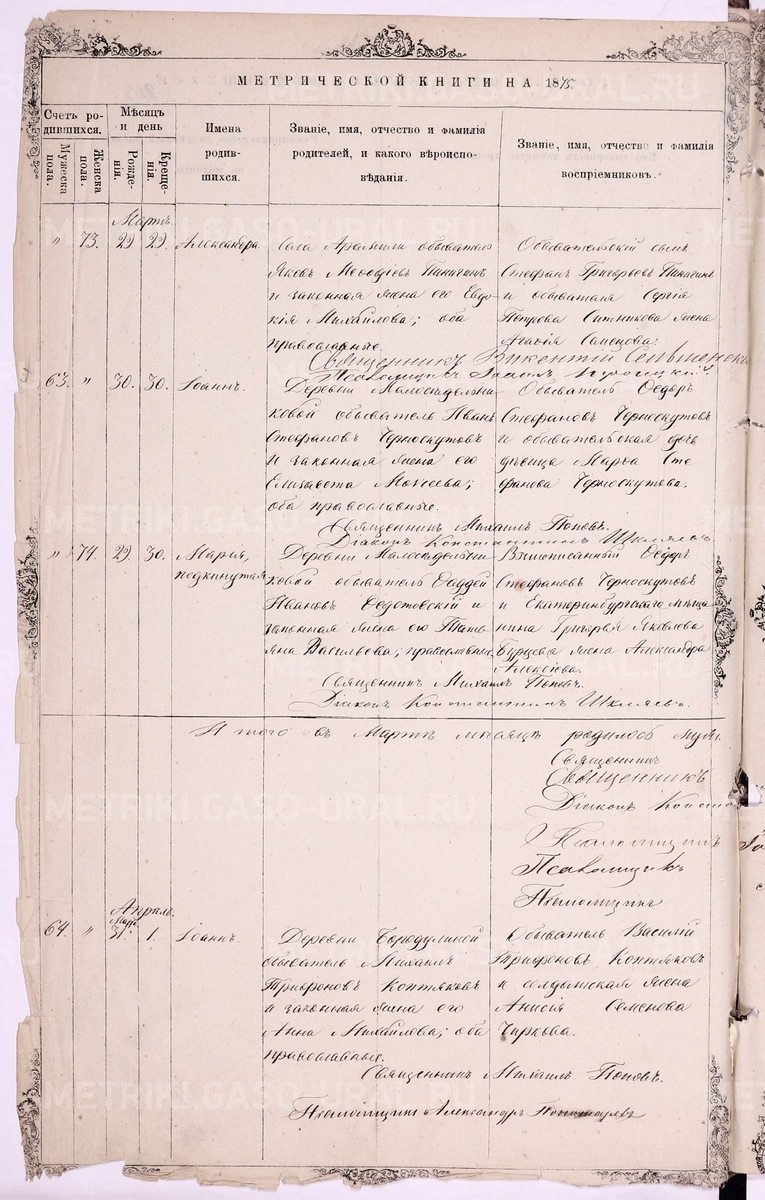 МЕТРИЧЕСКОЙ КНИГИ НА 1875.
Счетъ ро-
дившихся.
Мужеска
пола.
Женска
пола.
Мѣсяцъ
и день
Рожде-
нія.
Креще-
нія.
Имена
родив-
шихся.
Званіе, имя, отчество и фамилія
родителей, и какого вѣроиспо-
вѣданія.
Званіе, имя, отчество и фамилія
воспріемниковъ.
Мартъ.
" 73. 29 29. Александра
Села Арамили обыватель
Яковъ Меѳодіевъ Пинигинъ
и законная жена его Евдо-
кія Михайлова; оба
православные.
Обывательскій сынъ
Стефанъ Григорьевъ Пинигинъ
и обывателя Сергія
Петрова Ситникова жена
Агафія Семенова.
Священникъ Викентій
Псаломщикъ
63. " 30. 30. Іоаннъ.
Деревни Малосидельни-
ковой обыватель Иванъ
Стефановъ Черноскутовъ
и законная жена его
Елизавета Моисеева;
оба православные.
Обыватель Ѳедоръ
Стефановъ Черноскутовъ
и обывательская дочь
дѣвица Марѳа Сте
фанова Черноскутова.
Священникъ Михаилъ Поповъ.
Діаконъ Константинъ Шкляевъ
" 74. 29 30. Марія,
подкинутая
Деревни Малосидельни-
ковой обыватель Ѳаддей
Ивановъ Ѳедотовскій и
законная жена его Татья-
яна Васильева; православные.
Вышеписанный Ѳедоръ
Стефановъ Черноскутовъ
и Екатеринбургскаго мѣща
нина Григорья Яковлева
Бурцева жена Александра
Алексіева.
Священникъ Михаилъ Поповъ.
Діаконъ Константинъ Шкляевъ.
Итого въ Мартѣ мѣсяцѣ родилось муж.
Священникъ
Священникъ
Діаконъ Конста
Псаломщикъ
Псаломщикъ
Псаломщикъ
Апрѣль.
Март.
64. " 31. 1. Іоаннъ.
Деревни Бородулиной
обыватель Михаилъ
Трифоновъ Коптяковъ
и законная жена его
Анна Михайлова; оба
православные.
Обыватель Василій
Трифоновъ Коптяковъ
и солдатская жена
Анисія Семенова
Чиркова.
Священникъ Михаилъ Поповъ.
Псаломщикъ Александръ Пономаревъ
METRIKI.GASO-URAL.RU